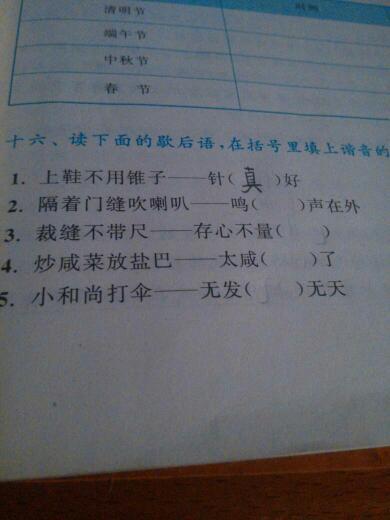 清明节 时间
端午节
中秋节
春 节
十六、读下面的歇后语，在括号里填上谐音的
1. 上鞋不用锥子——针(真)好
2. 隔着门缝吹喇叭——鸣( )声在外
3. 裁缝不带尺——存心不量( )
4. 炒咸菜放盐巴——太咸( )了
5. 小和尚打伞——无发( )无天